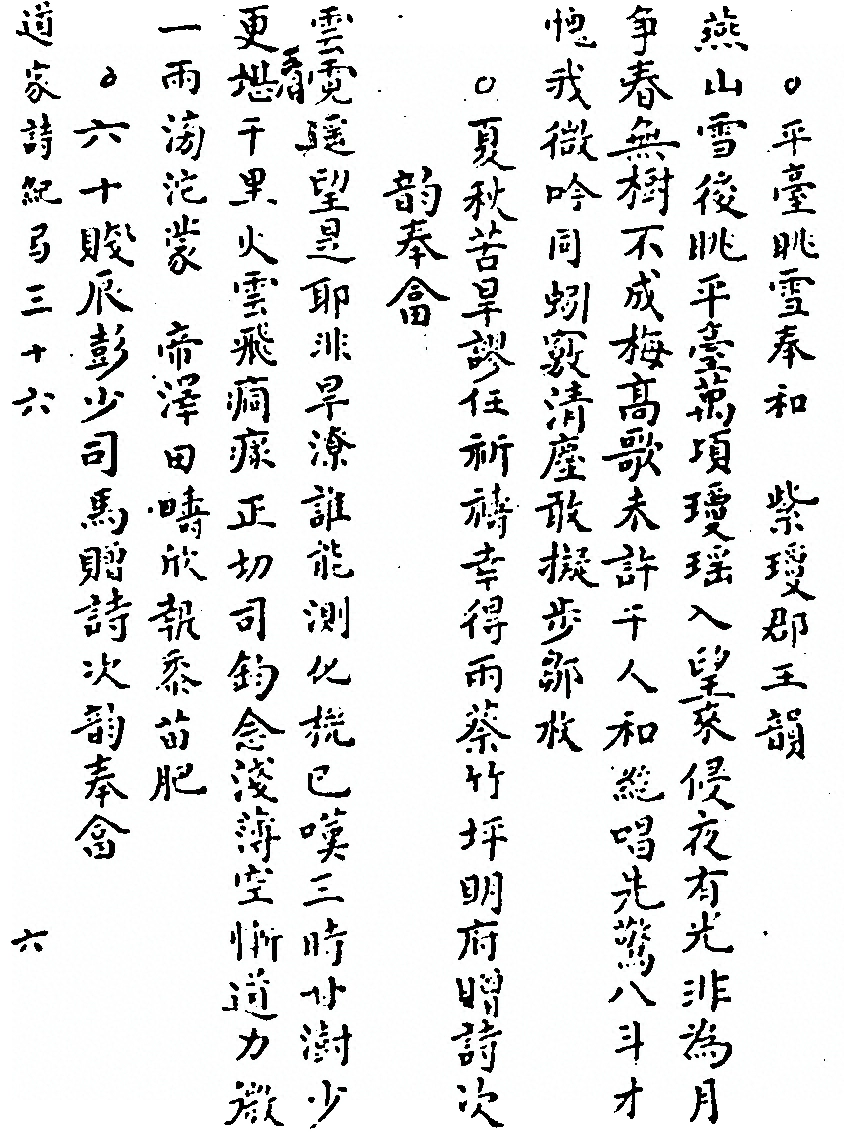 ○平臺眺雪奉和　紫瓊郡王韻
燕山雪後眺平臺萬頃瓊瑤入望來侵夜有光非為月
争春無樹不成梅高歌未許千人和絶唱先驚八斗才
愧我微吟同蚓竅清塵敢擬步鄒枚
○夏秋苦旱謬任祈禱幸得雨蔡竹坪明府贈詩次
韵奉畣
雲霓遥望是耶非旱潦誰能測化機已嘆三時甘澍少
更堪看千里火雲飛痌瘝正切司鈞念淺薄空慚道力微
一雨滂沱蒙　帝澤田疇欣覩黍苗肥
○六十賤辰彭少司馬贈詩次韵奉畣
道家詩紀弓三十六　六